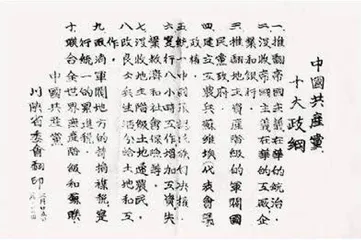 中國共產黨
十大政綱
一、推翻帝國主義在華的統治,
二、沒收帝國主義在華的工廠、企
業和銀行。
三、推翻地主資產階級的軍閥國
民黨政府。
四、建立工農兵蘇維埃代表會議
政權。
五、統一中國
六、實行八小時工作增加工資失
業救濟和社會保險等。
七、沒收地主階級土地
農民。
八、改良士兵生活分給土地和工
作。
九、取消軍閥地方的苛捐雜稅實
行統一的累進稅。
十、聯合全世界無產階級和蘇聯。
中國共產黨
川陝省委會翻印